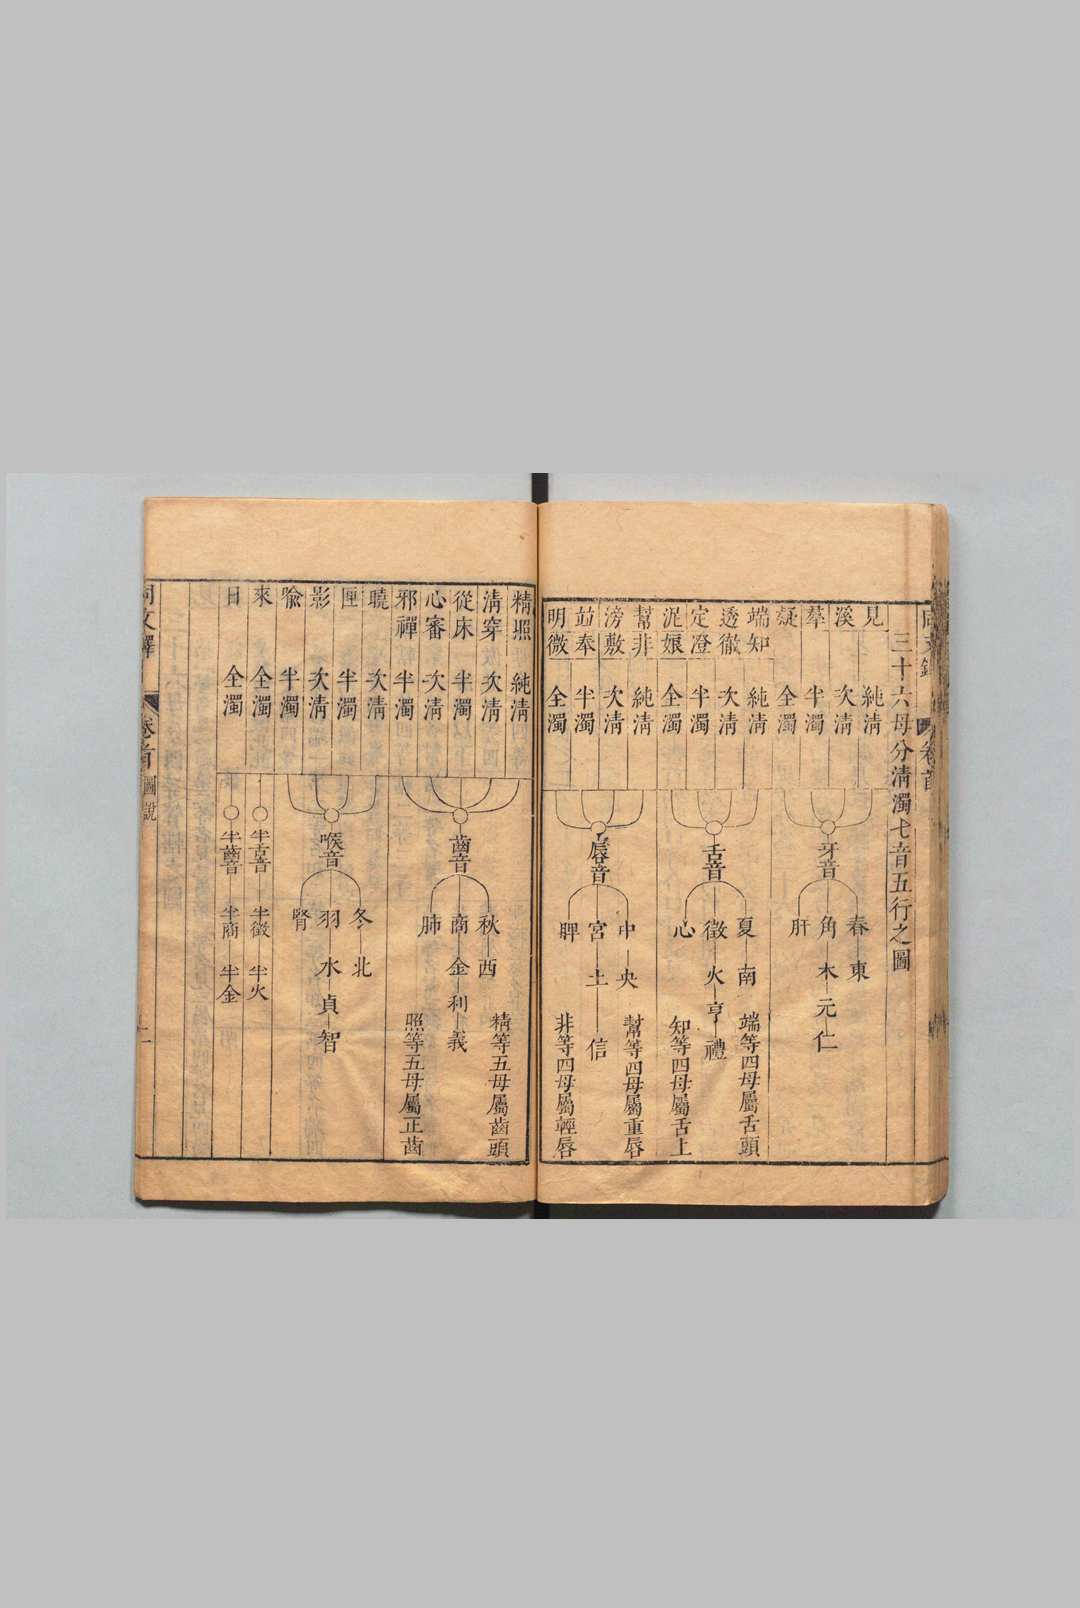 三十六母分淸濁七音五行之圖
見 純淸
溪 次淸
羣 半濁
疑 全濁
牙音
春 東
角 木 元 仁
肝
端知 純淸
透徹 次淸
定澄 半濁
泥娘 全濁
舌音
夏 南
徵 火 亨 禮
心
端等四母屬舌頭
知等四母屬舌上
幫非 純淸
滂敷 次淸
並奉 半濁
明微 全濁
唇音
中 央
宮 土 信
脾
幫等四母屬重唇
非等四母屬輕唇
精照 純淸
淸穿 次淸
從床 半濁
心審 次淸
邪禪 半濁
齒音
秋 西
商 金 利 義
肺
精等五母屬齒頭
照等五母屬正齒
曉 次淸
匣 半濁
影 次淸
喩 半濁
喉音
冬 北
羽 水 貞 智
腎
來 全濁
半舌音 半徵 半火
日 全濁
半齒音 半商 半金
同文鐸 卷首 圖說 二